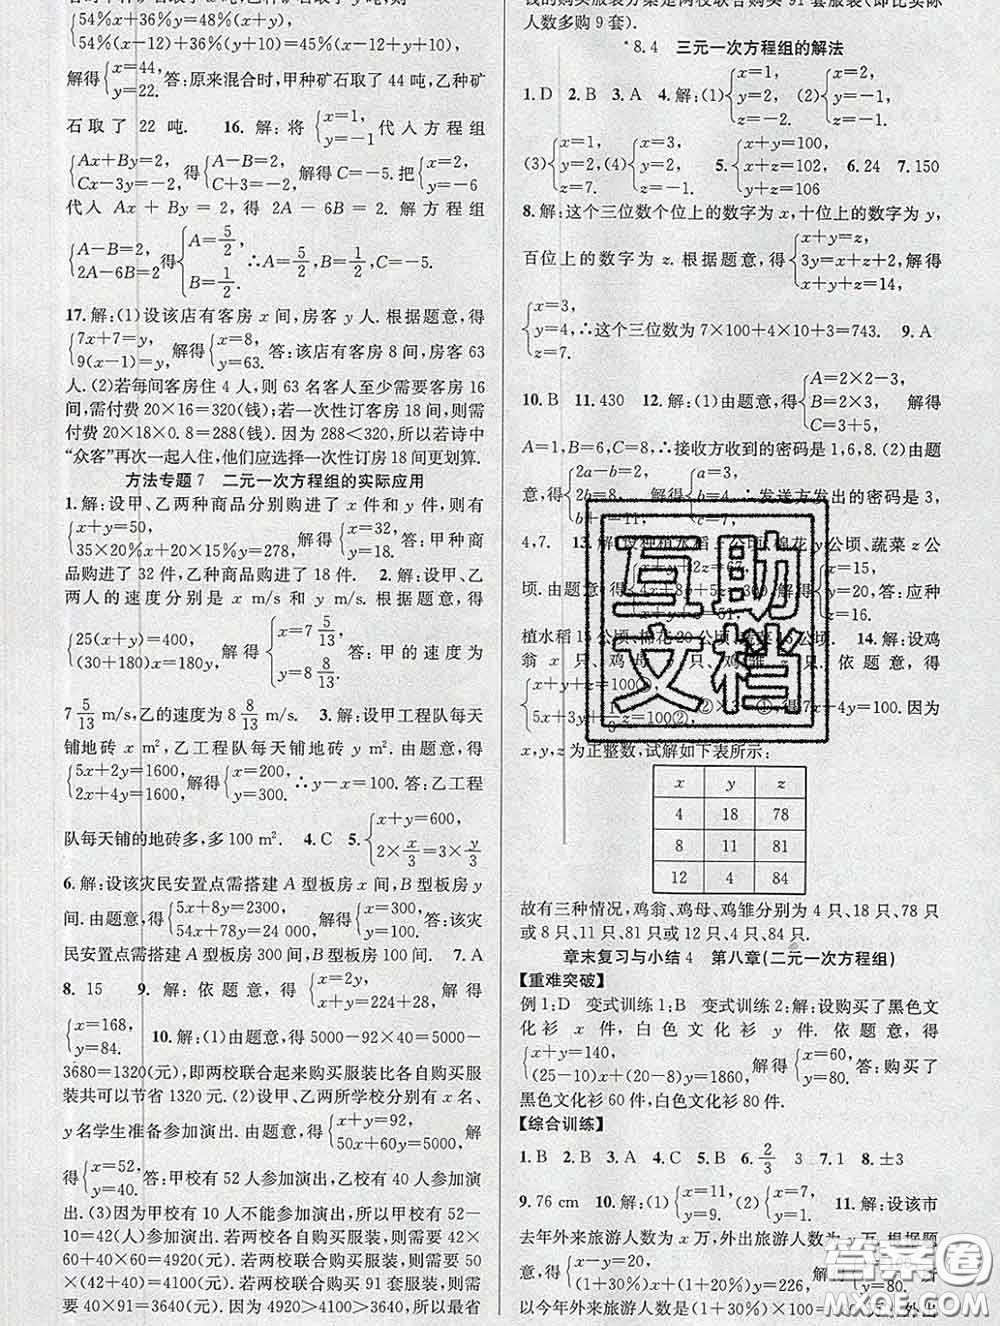 {54%x+36%y=48%(x+y),
54%(x-12)+36%(y+10)=45%(x-12+y+10),
解得{x=44, y=22. 答:原来混合时,甲种矿石取了 44 吨,乙种矿
石取了 22 吨. 16. 解:将{x=1, y=-1代入方程组
{Ax+By=2, Cx-3y=-2,得{A-B=2, C+3=-2.解得C=-5.把{x=2, y=-6
代入 Ax+By=2,得 2A-6B=2.解方程组
{A-B=2, 2A-6B=2得{A=5/2, B=1/2 ∴A=5/2,B=1/2,C=-5.
17.解:(1)设该店有客房 x 间,房客 y 人.根据题意,得
{7x+7=y, 9(x-1)=y,解得{x=8, y=63 答:该店有客房 8 间,房客 63
人.(2)若每间客房住 4 人,则 63 名客人至少需要客房 16
间,需付费20×16=320(钱);若一次性订客房18间,则需
付费 20×18×0.8=288(钱).因为 288<320,所以若诗中
“众客”再次一起入住,他们应选择一次性订房18间更划算.
方法专题 7 二元一次方程组的实际应用
1.解:设甲、乙两种商品分别购进了 x 件和 y 件,根据题意,得
{x+y=50, 35×20%x+20×15%y=278,解得{x=32, y=18. 答:甲种商
品购进了 32 件,乙种商品购进了 18 件. 2.解:设甲、乙
两人的速度分别是 x m/s 和 y m/s.根据题意,得
{25(x+y)=400, (30+180)x=180y 解得{x=7 5/13, y=8 8/13. 答:甲的速度为
7 5/13 m/s,乙的速度为8 8/13 m/s. 3.解:设甲工程队每天
铺地砖 x m²,乙工程队每天铺地砖 y m².由题意,得
{5x+2y=1600, 2x+4y=1600,解得{x=200, y=300. ∴y-x=100.答:乙工程
队每天铺的地砖多,多100 m². 4.C 5.{x+y=600, 2×x/3=3×y/3
6.解:设该灾民安置点需搭建 A 型板房 x 间,B 型板房 y
间.由题意,得{5x+8y=2300, 54x+78y=24 000,解得{x=300, y=100. 答:该灾
民安置点需搭建 A 型板房 300 间,B 型板房 100 间. 7.A
8. 15 9. 解:依题意,得 解得
{x=168, y=84. 10.解:(1)由题意,得5000-92×40=5000-
3680=1320(元),即两校联合起来购买服装比各自购买服
装共可以节省 1320 元.(2)设甲、乙两所学校分别有 x 名、
y名学生准备参加演出.由题意,得{x+y=92, 50x+60y=5000.解
得{x=52, y=40. 答:甲校有 52 人参加演出,乙校有 40 人参加演
出.(3)因为甲校有 10 人不能参加演出,所以甲校有 52-
10=42(人)参加演出.若两校各自购买服装,则需要 42×
60+40×60=4920(元);若两校联合购买服装,则需要
50×(42+40)=4100(元);若两校联合购买 91 套服装,则
需要 40×91=3640(元).因为 4920>4100>3640,所以最省
钱的购买服装方案是两校联合购买 91 套服装(即比实际
人数多购 9 套).
*8.4 三元一次方程组的解法
1.D 2.B 3.A 4.解:(1){x=1, y=2, z=-1. (2){x=2, y=-1, z=-1.
(3){x=1, y=2, z=7. (4){x=2, y=1, z=1. 5.{x+y=100, x+z=102, y+z=106 6.24 7.150
8.解:这个三位数个位上的数字为 x,十位上的数字为 y,
百位上的数字为 z.根据题意,得{x+y=z, x+y+z=14, 解得
{x=3, y=4, z=7. ∴这个三位数为 7×100+4×10+3=743. 9.A
10.B 11.430 12.解:(1)由题意,得{A=2×2-3, B=2×3, 解得
A=1,B=6,C=8,∴接收方收到的密码是 1,6,8.(2)由题
意,得 解得{a=3, b=4, c=7. ∴发送方发出的密码是 3,
4,7. 13.解:设种植水稻x公顷,棉花y公顷,蔬菜 z 公
顷.由题意,得 解得{x=15, y=20, z=16. 答:应种
植水稻15公顷,棉花20公顷,蔬菜16公顷. 14.解:设鸡
翁 x 只、鸡母 y 只、鸡雏 z 只.依题意,得
②×3-①,得7x+4y=100.因为
x,y,z为正整数,试解如下表所示:
x y z
4 18 78
8 11 81
12 4 84
故有三种情况,鸡翁、鸡母、鸡雏分别为 4 只、18、78 只
或 8 只、11 只、81 只或 12 只、4 只、84 只.
章末复习与小结 4 第八章(二元一次方程组)
【重难突破】
例 1:D 变式训练 1:B 变式训练 2:解:设购买了黑色文
化衫 x 件,白色文化衫 y 件.依题意,得
{x+y=140, (25-10)x+(20-8)y=1860,解得{x=60, y=80. 答:购买了
黑色文化衫 60 件,白色文化衫 80 件.
【综合训练】
1.B 2.B 3.A 4.C 5.B 6. 2/3 3 7.1 8.±3
9.76 cm 10.解:(1){x=11, y=9. (2){x=7, y=1. 11.解:设该市
去年外来旅游人数为 x 万,外出旅游人数为 y 万.根据题
意,得{x-y=20, (1+30%)x+(1+20%)y=226, 解得{x=100, y=80. 所
以今年外来旅游人数是(1+30%)×100=130(万),外出
互助文档
答案圈